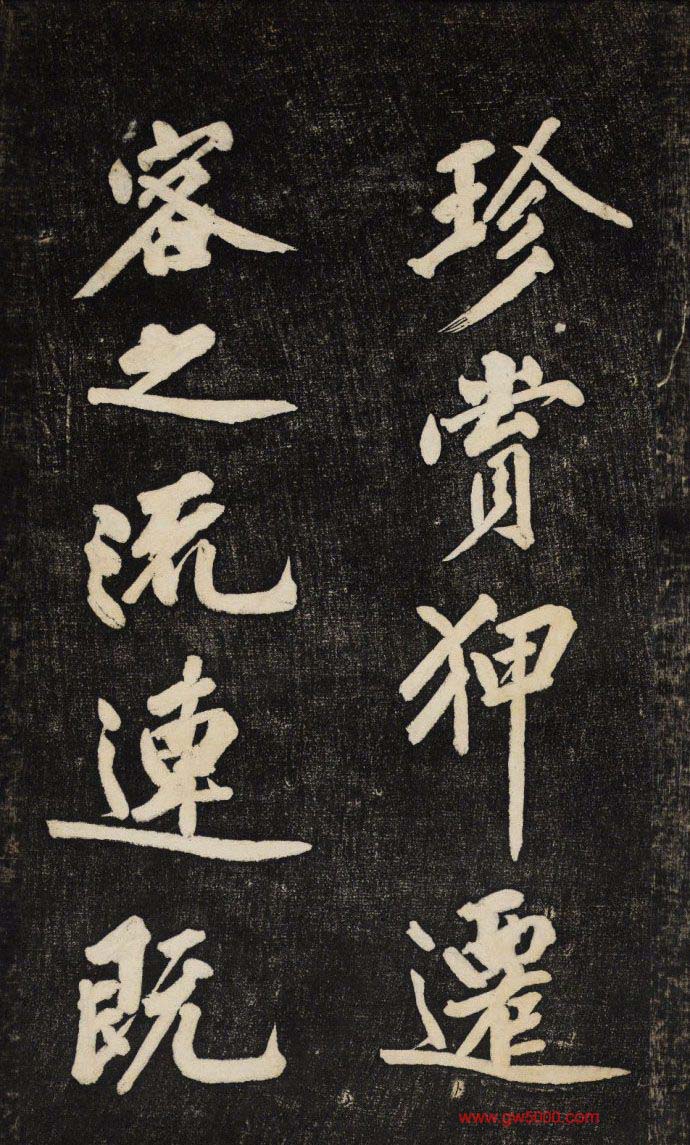 珍賞狎遷
客之流連既
www.gw5000.com